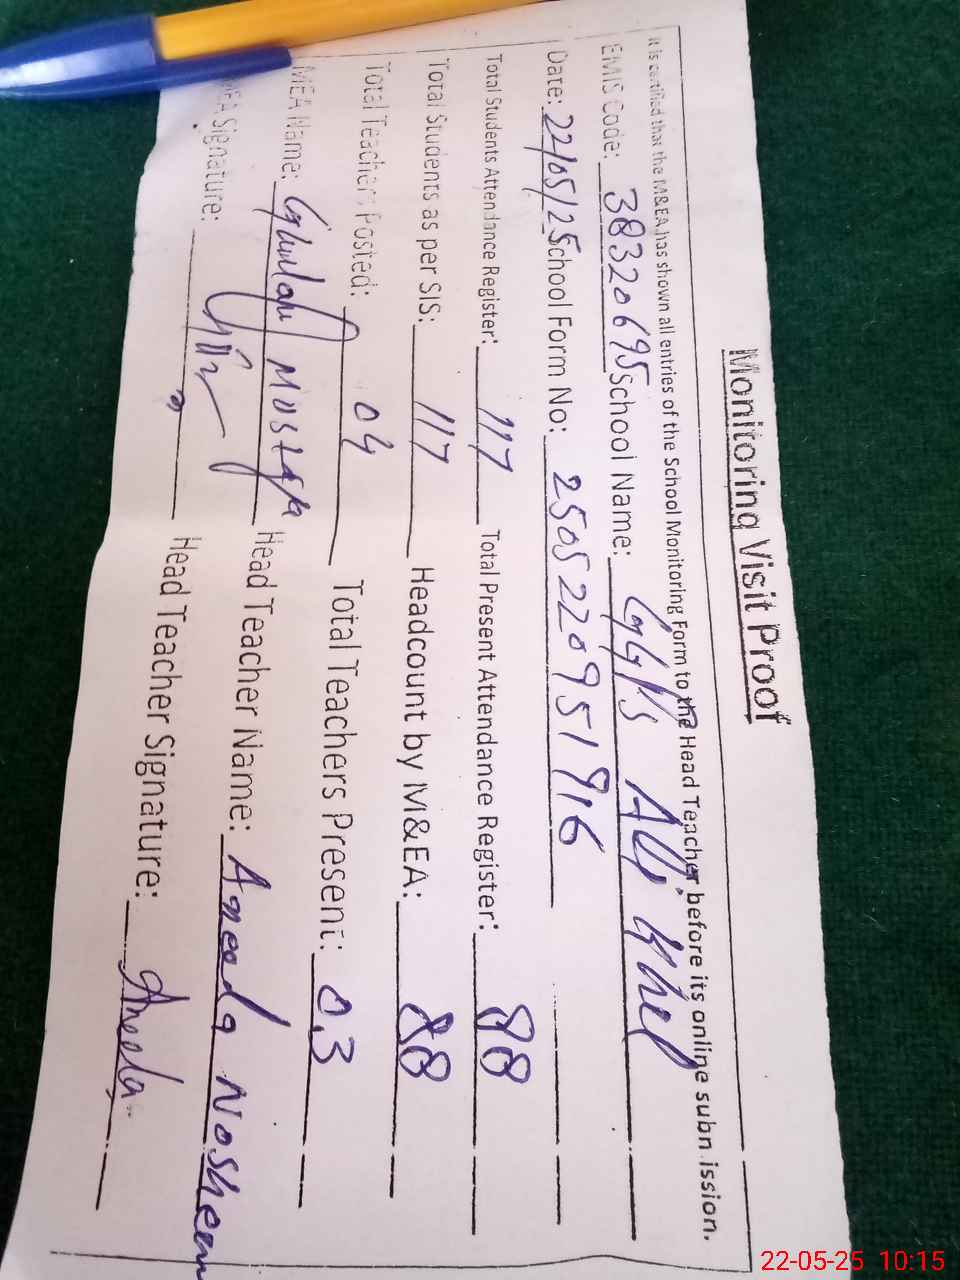 Monitoring Visit Proof
It is certified that the M&EA has shown all entries of the School Monitoring Form to the Head Teacher before its online submission.
EMIS Code: 38320695 School Name: GGPS Alli Khel
Date: 22/05/25 School Form No: 2505220951916
Total Students Attendance Register: 117 Total Present Attendance Register: 88
Total Students as per SIS: 117 Headcount by M&EA: 88
Total Teachers Posted: 04 Total Teachers Present: 03
MEA Name: Ghulam Mostafa Head Teacher Name: Aneela Nosheen
MEA Signature: Head Teacher Signature: Aneela
22-05-25 10:15